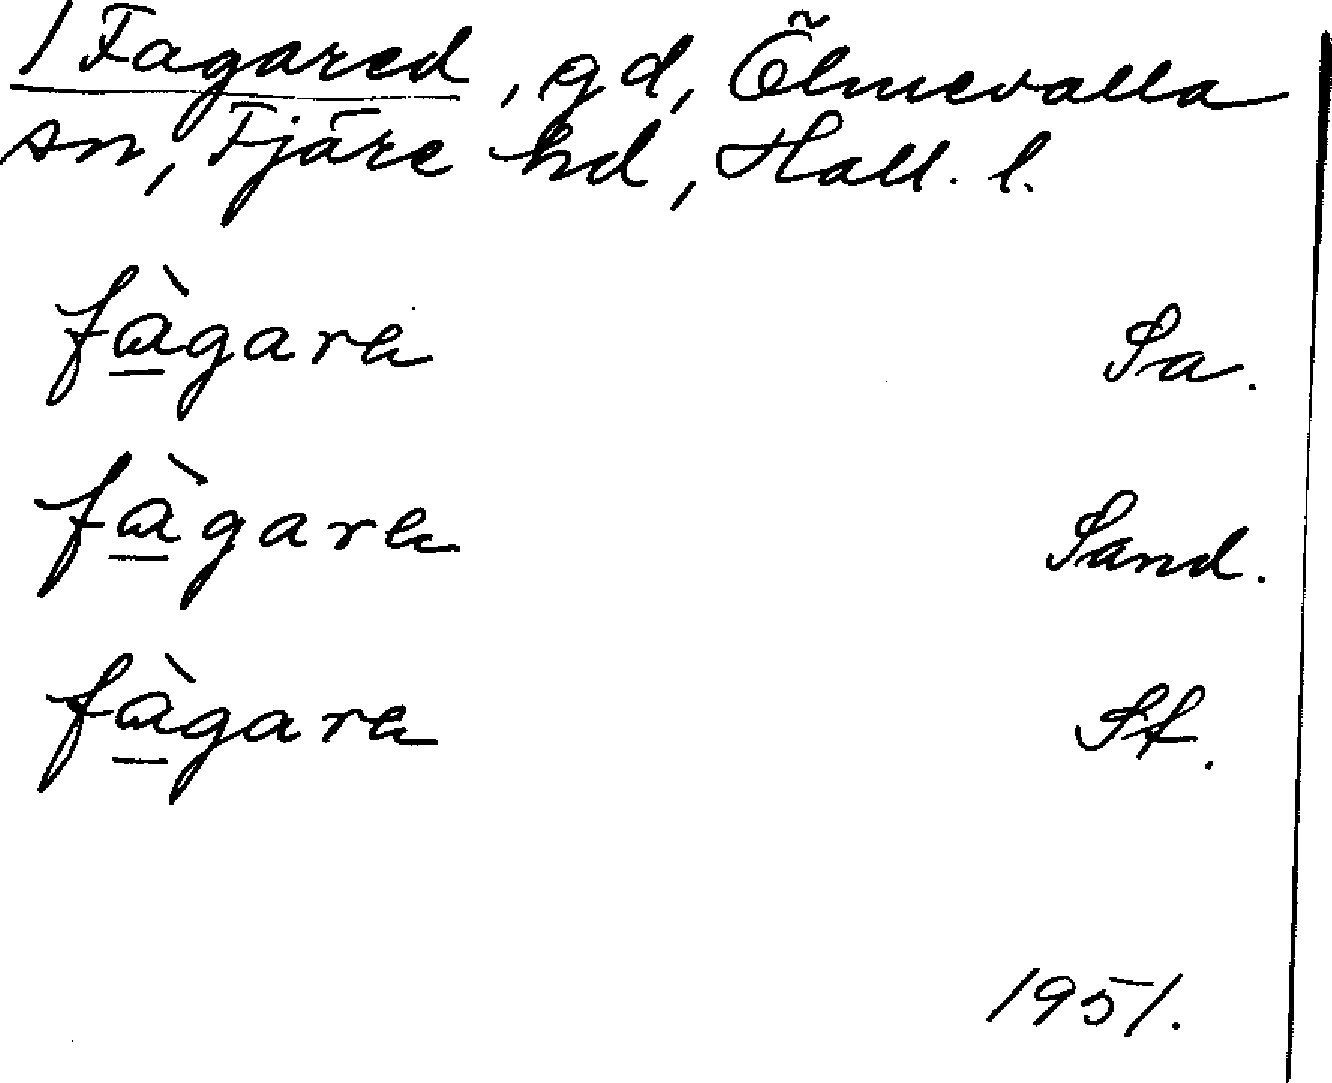 1 Fagared, gd, Ölmevalla
sn, Fjäre hd, Hall. l.
fàgara Sa.
fàgara Sand.
fàgara St.
1951.